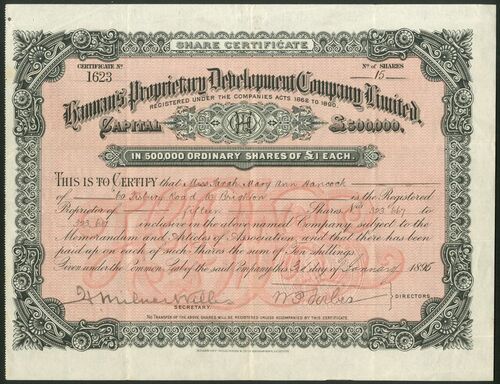 SHARE CERTIFICATE
CERTIFICATE No
1623
No OF SHARES
15
Hannan's Proprietary Development Company Limited.
REGISTERED UNDER THE COMPANIES ACTS 1862 TO 1890.
CAPITAL £500,000.
IN 500,000 ORDINARY SHARES OF £1 EACH.
THIS IS TO CERTIFY that Miss Sarah Mary Ann Hancock
of 60 Road Brighton is the Registered
Proprietor of fifteen Shares Nos 393 667 to
inclusive in the above named Company subject to the
Memorandum and Articles of Association, and that there has been
paid up on each of such Shares the sum of Ten shillings
Given under the Common Seal of the said Company this day of January 1896
SECRETARY.
DIRECTORS
NO TRANSFER OF THE ABOVE SHARES WILL BE REGISTERED UNLESS ACCOMPANIED BY THIS CERTIFICATE.